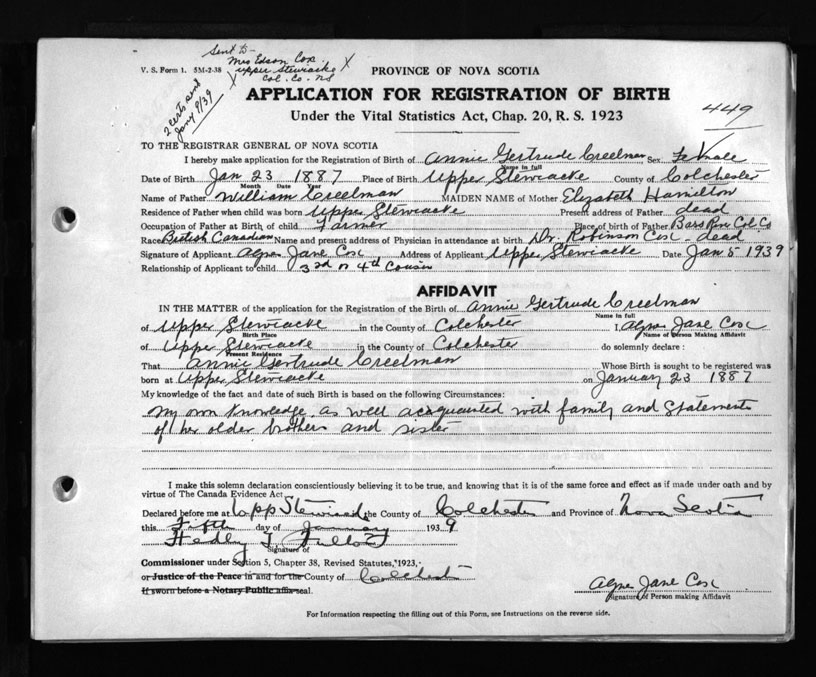 Sent to -
Mrs Edson Cox X
X Upper Stewiacke
Col. Co. NS
V. S. Form 1. 5M-2-38
2 certs send
Jany 9/39
PROVINCE OF NOVA SCOTIA
APPLICATION FOR REGISTRATION OF BIRTH
Under the Vital Statistics Act, Chap. 20, R. S. 1923
449
TO THE REGISTRAR GENERAL OF NOVA SCOTIA
I hereby make application for the Registration of Birth of Annie Gertrude Creelman Sex Female
Name in full
Date of Birth Jan 23 1887 Place of Birth Upper Stewiacke County of Colchester
Month Date Year
Name of Father William Creelman MAIDEN NAME of Mother Elizabeth Hamilton
Residence of Father when child was born Upper Stewiacke Present address of Father dead
Occupation of Father at Birth of child Farmer Place of birth of Father Bass River Col. Co
Race British Canadian Name and present address of Physician in attendance at birth Dr. Robinson Cox dead
Signature of Applicant Jane Cox Address of Applicant Upper Stewiacke Date Jan 5 1939
Relationship of Applicant to child 3rd or 4th Cousin
AFFIDAVIT
IN THE MATTER of the application for the Registration of the Birth of Annie Gertrude Creelman
Name in full
of Upper Stewiacke in the County of Colchester I, Jane Cox
Birth Place Name of Person Making Affidavit
of Upper Stewiacke in the County of Colchester do solemnly declare :
Present Residence
That Annie Gertrude Creelman Whose Birth is sought to be registered was
born at Upper Stewiacke on January 23 1887
My knowledge of the fact and date of such Birth is based on the following Circumstances:
My own knowledge. as well acaquanted with family and statements
of her older brothers and sister
I make this solemn declaration conscientiously believing it to be true, and knowing that it is of the same force and effect as if made under oath and by
virtue of The Canada Evidence Act
Declared before me at Upp Stewiacke the County of Colchester and Province of Nova Scotia
this Fifth day of January 1939
Hedley
Signature of
Commissioner under Section 5, Chapter 38, Revised Statutes, 1923,
or Justice of the Peace in and for the County of Colchester
If sworn before a Notary Public affix seal.
Jane Cox
Signature of Person making Affidavit
For Information respecting the filling out of this Form, see Instructions on the reverse side.